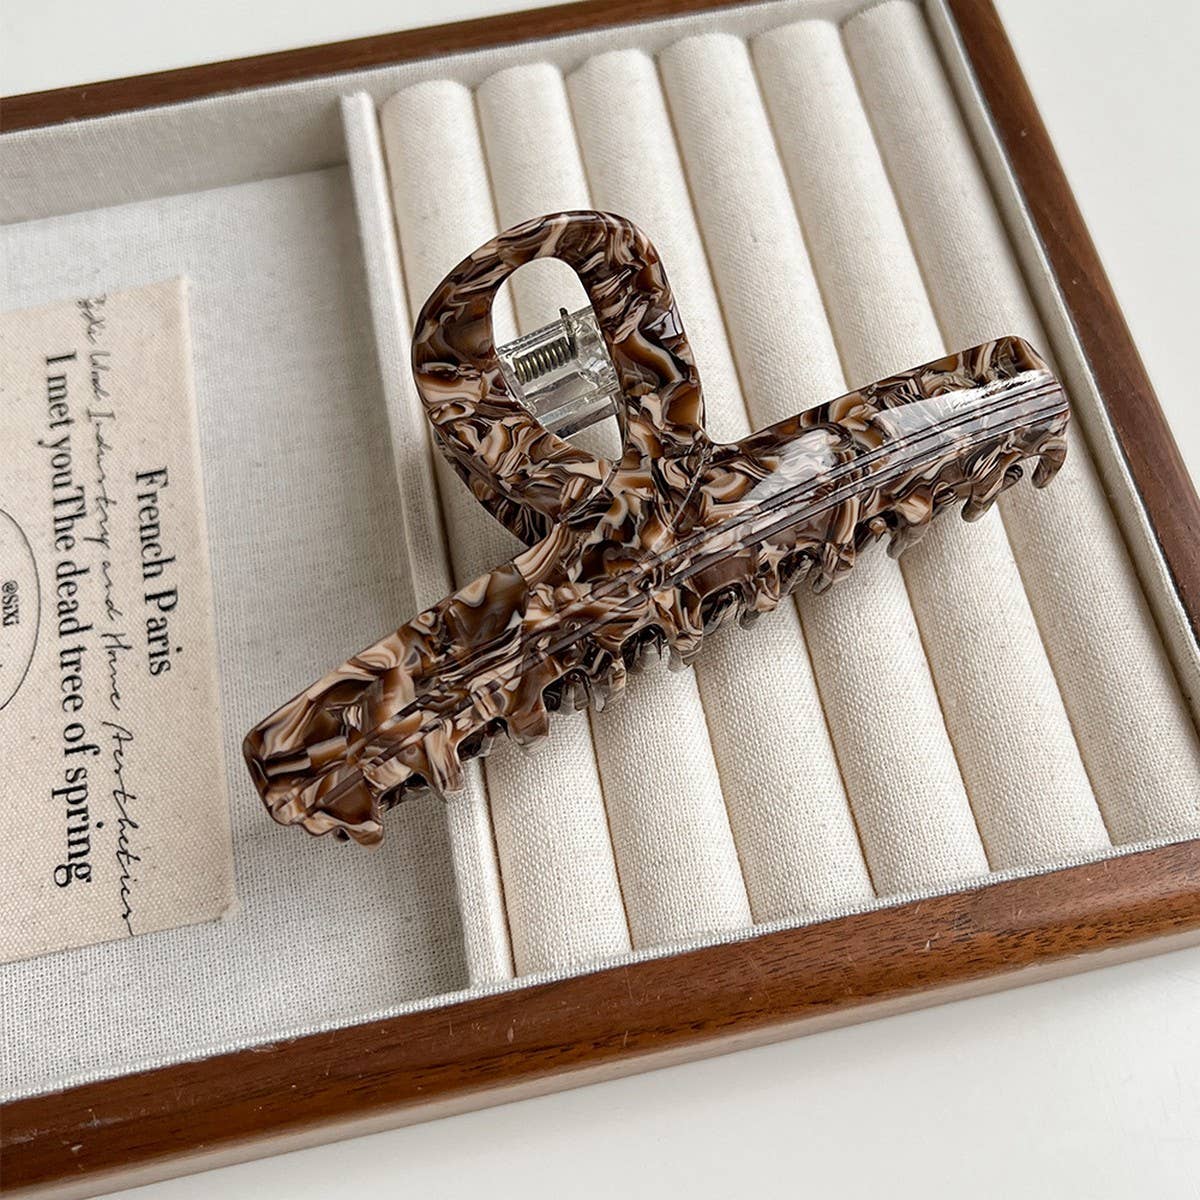 French Paris
Industry and Home Aesthetics
I met youThe dead tree of spring
@SiXi